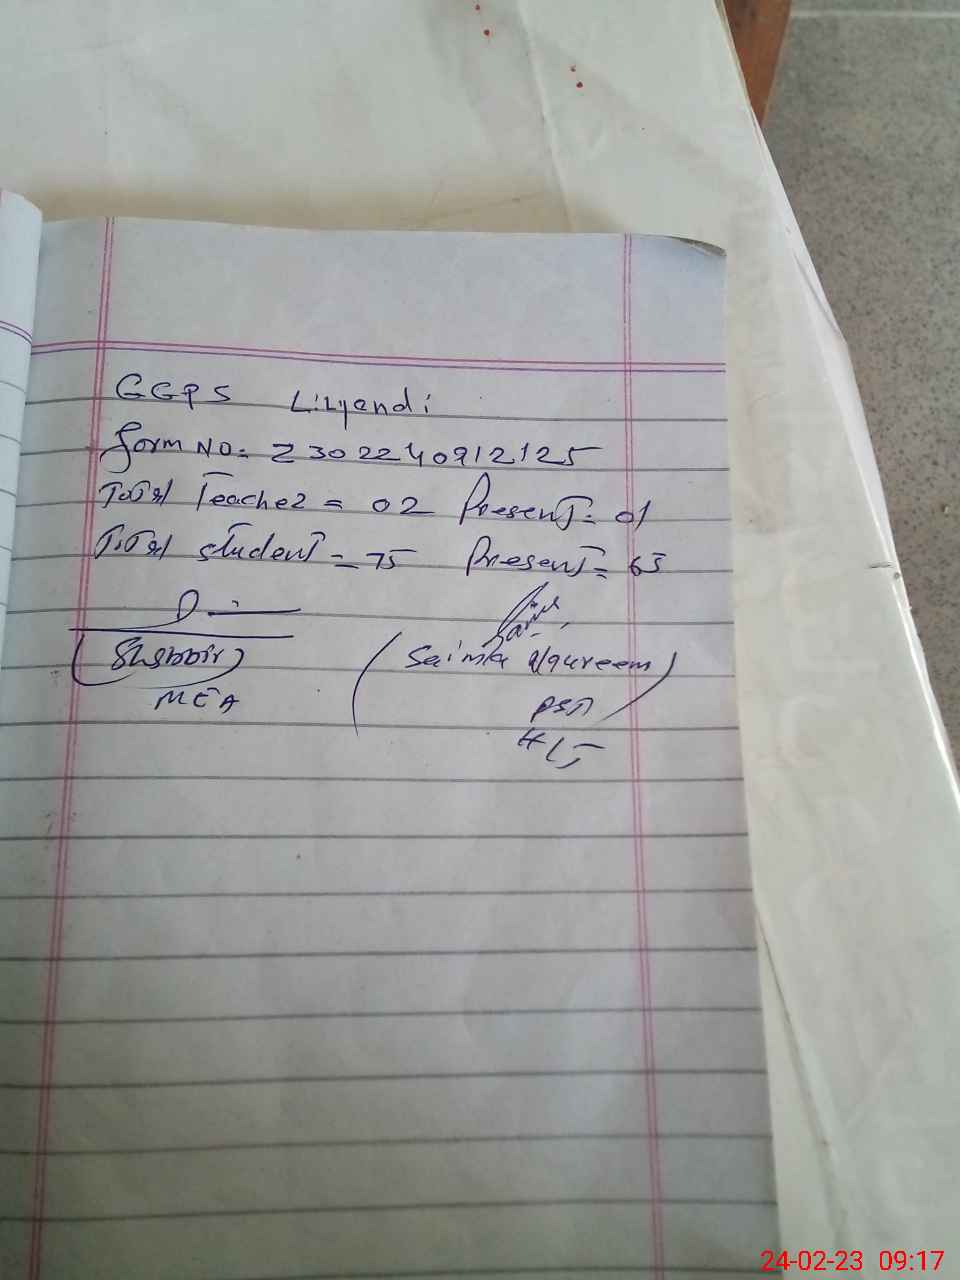 GGPS Lilyandi
Form NO: 230224 0912125
Total Teacher = 02 Present = 01
Total student = 75 Present = 63
(Shabbir)
MEA
(Saima
PST
24-02-23 09:17